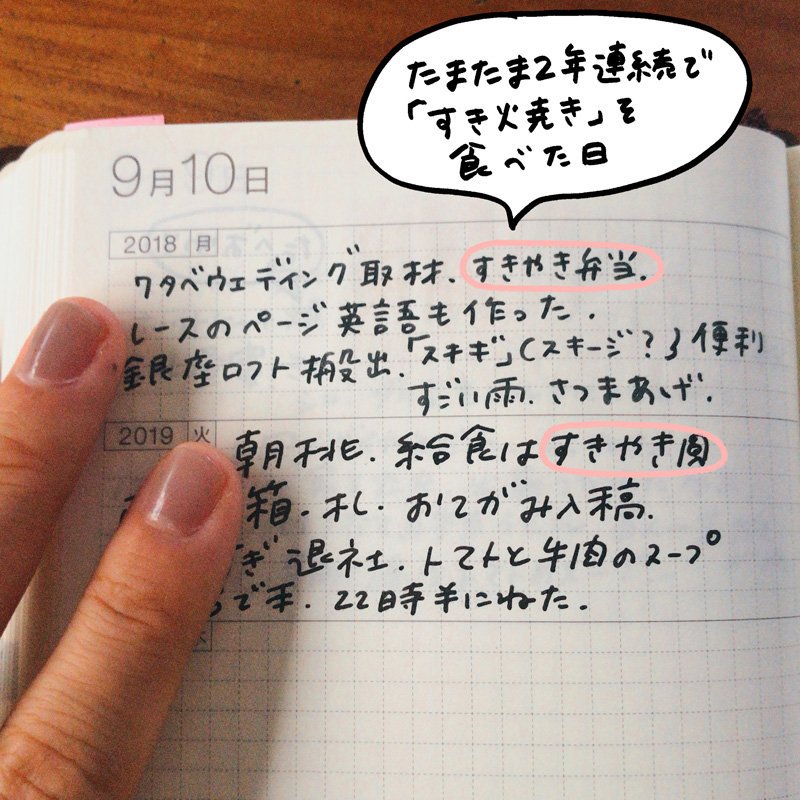 たまたま2年連続で
「すき火焼き」を
食べた日
9月10日
2018 月
ワタベウェディング取材.すきやき弁当.
レースのページ英語も作った.
銀座ロフト搬出.「スキギ」(スキージ?)便利
すごい雨.さつまあげ.
2019 火
朝桃.給食はすきやき
箱.札.おてがみ入稿.
ぎ 退社.トマトと牛肉のスープ
で 22時半にねた.